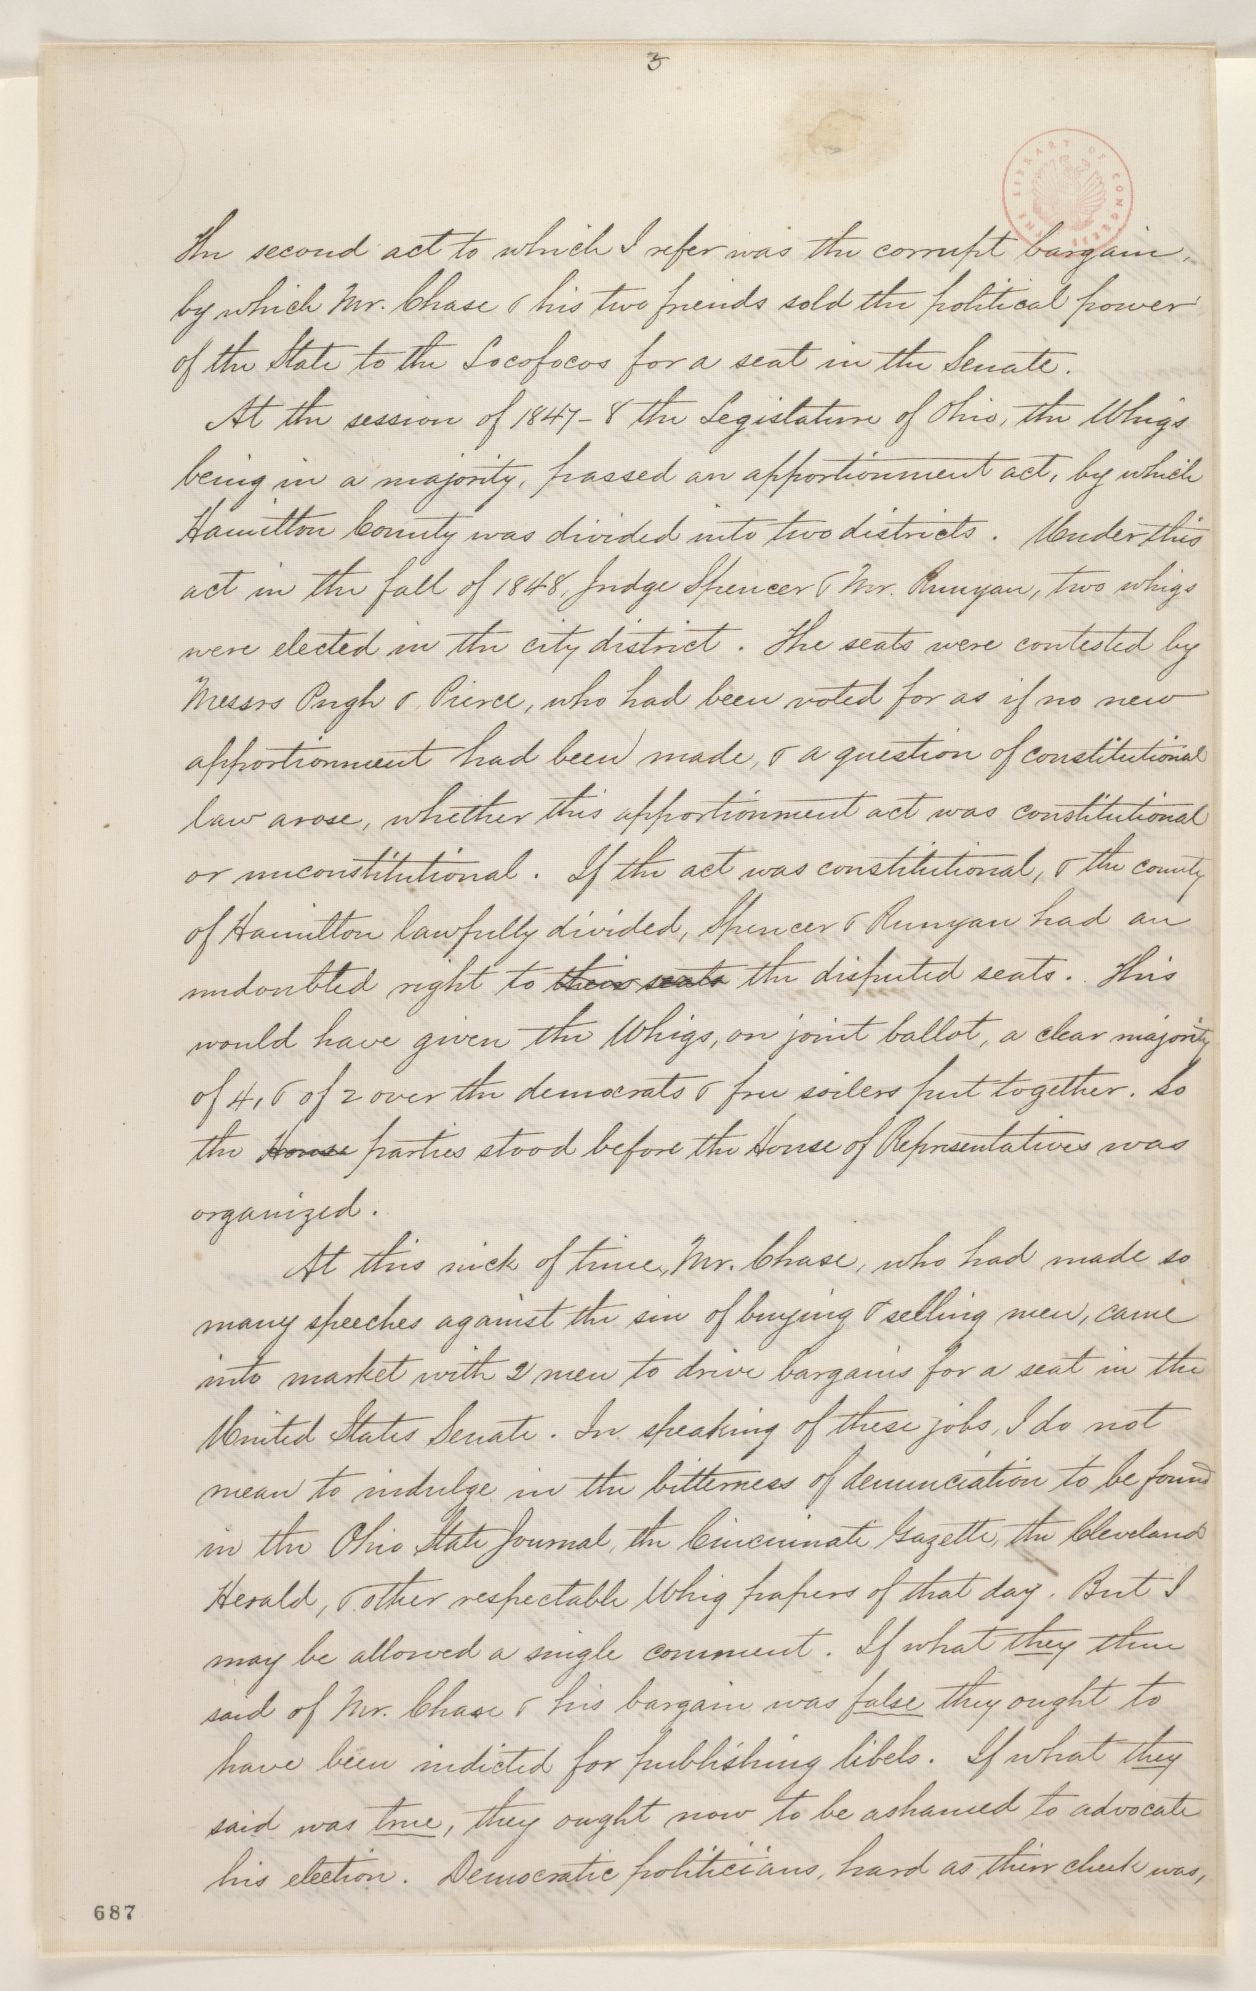 3
THE LIBRARY OF CONGRESS
The second act to which I refer was the corrupt bargain,
by which Mr. Chase & his two friends sold the political power
of the State to the Locofocos for a seat in the Senate.
At the session of 1847-8 the Legislature of Ohio, the Whigs
being in a majority, passed an apportionment act, by which
Hamilton County was divided into two districts. Under this
act in the fall of 1848, Judge Spencer & Mr. Runyan, two whigs
were elected in the city district. The seats were contested by
Messrs Pugh & Pierce, who had been voted for as if no new
apportionment had been made, & a question of constitutional
law arose, whether this apportionment act was constitutional
or unconstitutional. If the act was constitutional, & the county
of Hamilton lawfully divided, Spencer & Runyan had an
undoubted right to their seats the disputed seats. This
would have given the Whigs, on joint ballot, a clear majority
of 4, & of 2 over the democrats & free soilers put together. So
the House parties stood before the House of Representatives was
organized.
At this nick of time, Mr. Chase, who had made so
many speeches against the sin of buying & selling men, came
into market with 2 men to drive bargains for a seat in the
United States Senate. In speaking of these jobs, I do not
mean to indulge in the bitterness of denunciation to be found
in the Ohio State Journal, the Cincinnati Gazette, the Cleveland
Herald, & other respectable Whig papers of that day. But I
may be allowed a single comment. If what they then
said of Mr. Chase & his bargain was false they ought to
have been indicted for publishing libels. If what they
said was true, they ought now to be ashamed to advocate
his election. Democratic politicians, hard as their cheek was,
687